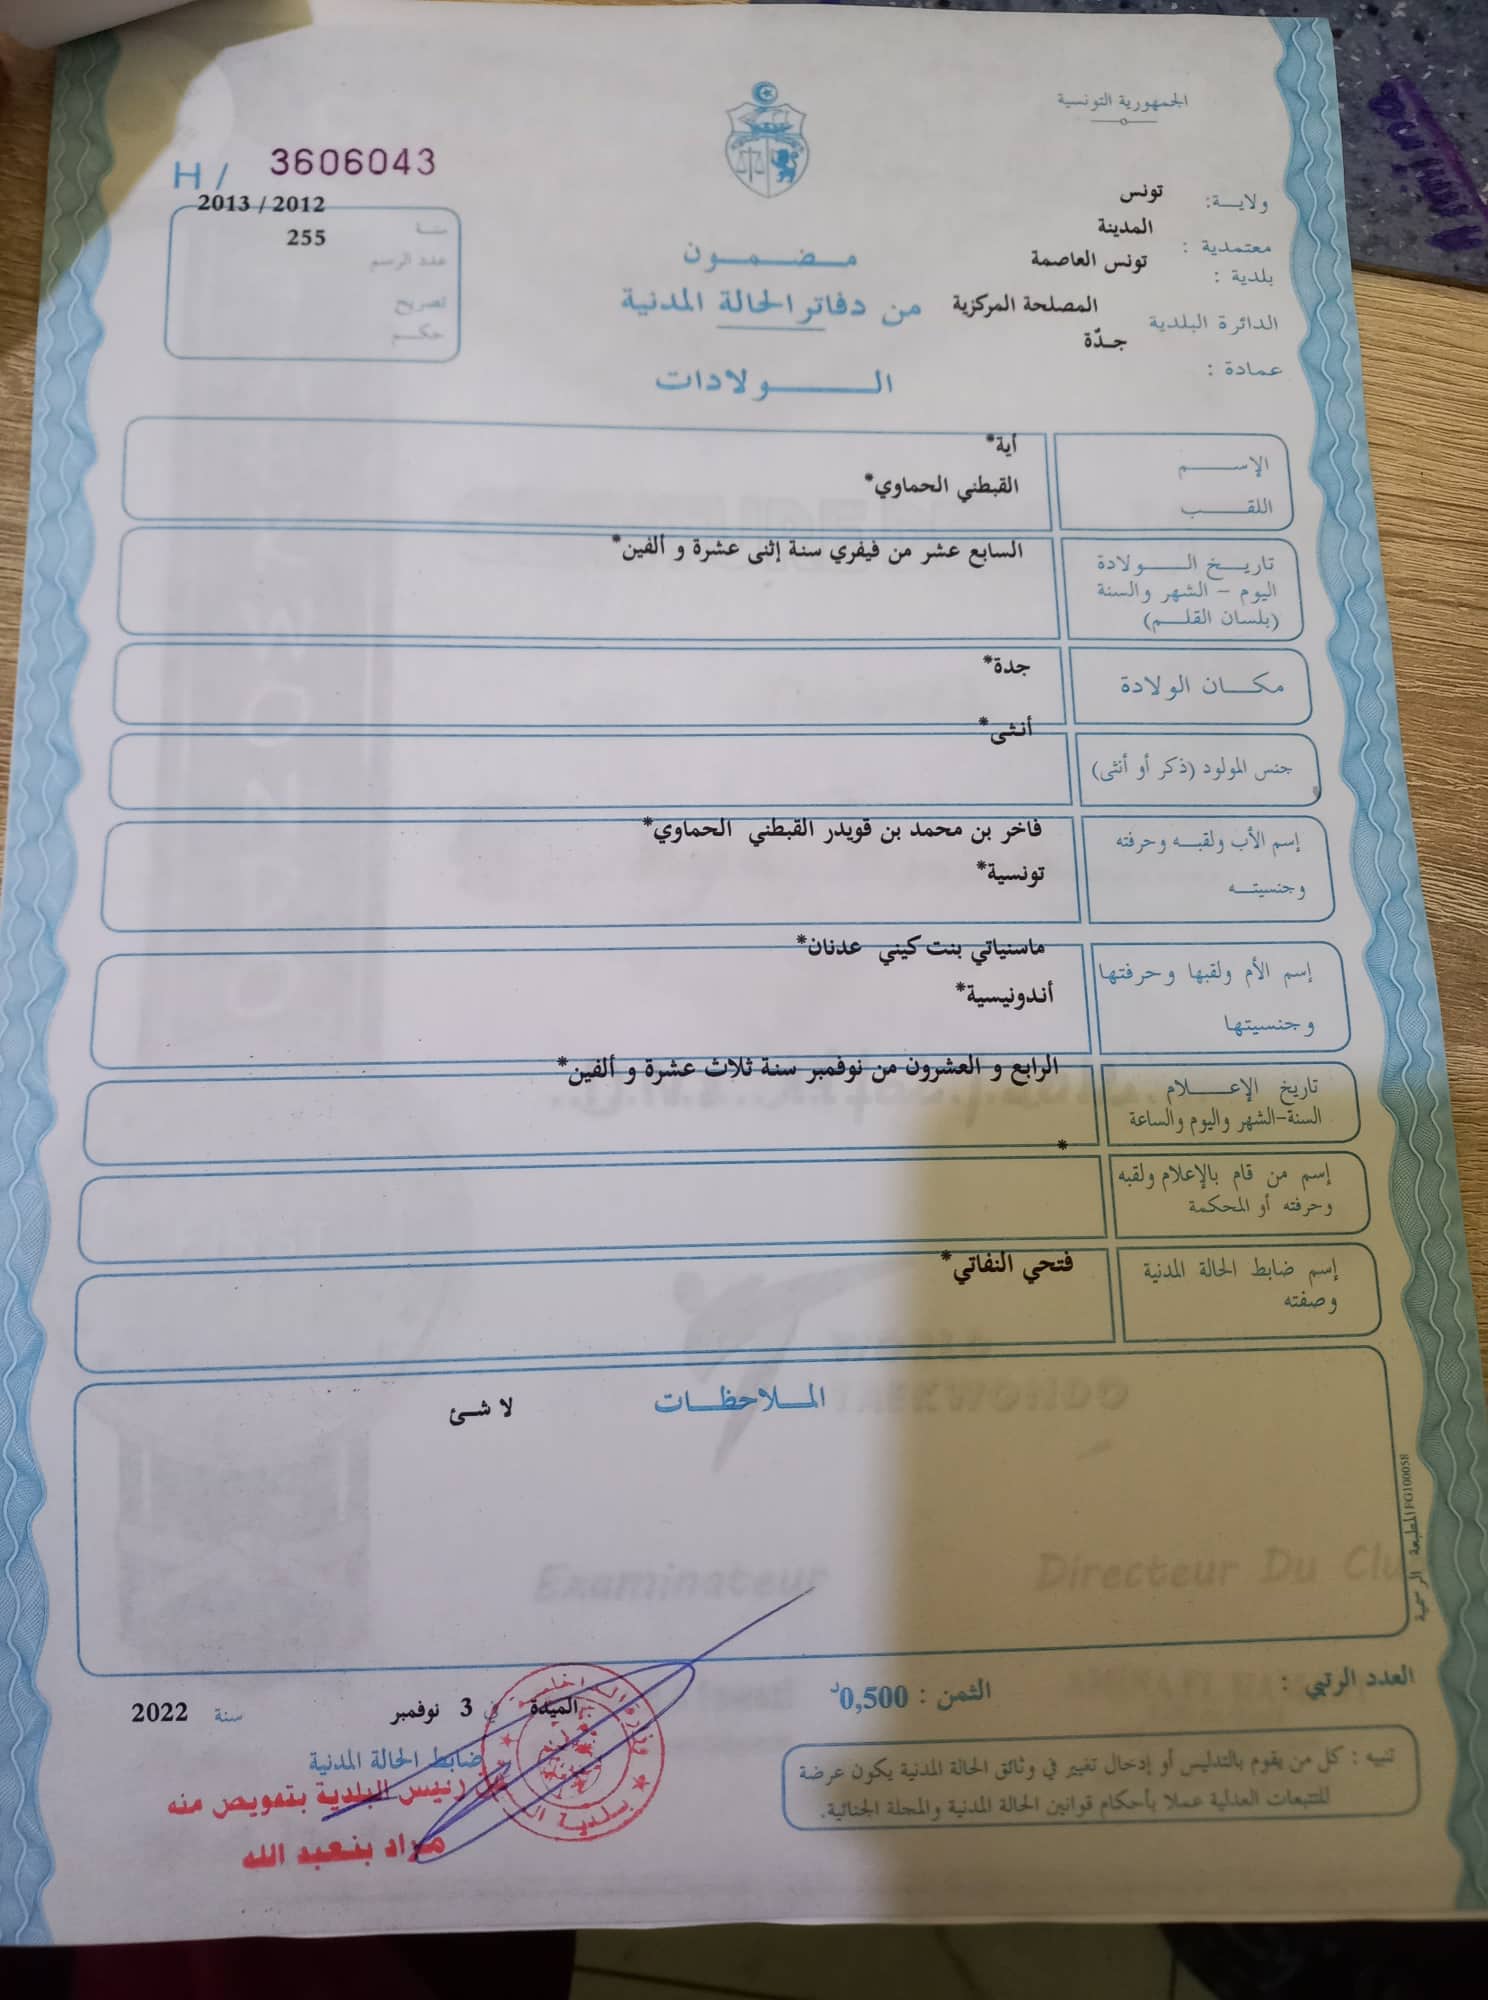 الجمهورية التونسية
H / 3606043
ولايـــة: تونس
معتمدية : المدينة
بلدية : تونس العاصمة
الدائرة البلدية المصلحة المركزية
عمادة : جـدّة
سنة 2012 / 2013
عدد الرسم 255
تصريح
حكـم
مـضـمـون
من دفاتر الحالة المدنية
الـــولادات
الإســـم أية*
اللقـــب القبطني الحماوي*
تاريــخ الـــولادة
اليوم - الشهر والسنة
(بلسان القلـــم)
السابع عشر من فيفري سنة إثنى عشرة و ألفين*
مكـــان الولادة جدة*
جنس المولود (ذكر أو أنثى) أنثى*
إسم الأب ولقبــه وحرفته
وجنسيتــه
فاخر بن محمد بن قويدر القبطني الحماوي*
تونسية*
إسم الأم ولقبها وحرفتها
وجنسيتها
ماسنياتي بنت كيني عدنان*
أندونيسية*
تاريخ الإعـــلام
السنة-الشهر واليوم والساعة
الرابع و العشرون من نوفمبر سنة ثلاث عشرة و ألفين*
إسم من قام بالإعلام ولقبه
وحرفته أو المحكمة
*
إسم ضابط الحالة المدنية
وصفته
فتحي النفاتي*
المـلاحظـات
لا شئ
TAEKWONDO
Examinateur
Directeur Du Clu
المطبعة الرسمية PG100058
العدد الرتبي :
الثمن : 0,500د
الميدة في 3 نوفمبر سنة 2022
ضابط الحالة المدنية
عن رئيس البلدية بتفويض منه
مراد بنعبد الله
تنبيه : كل من يقوم بالتدليس أو إدخال تغيير في وثائق الحالة المدنية يكون عرضة
للتتبعات العدلية عملا بأحكام قوانين الحالة المدنية والمجلة الجنائية.